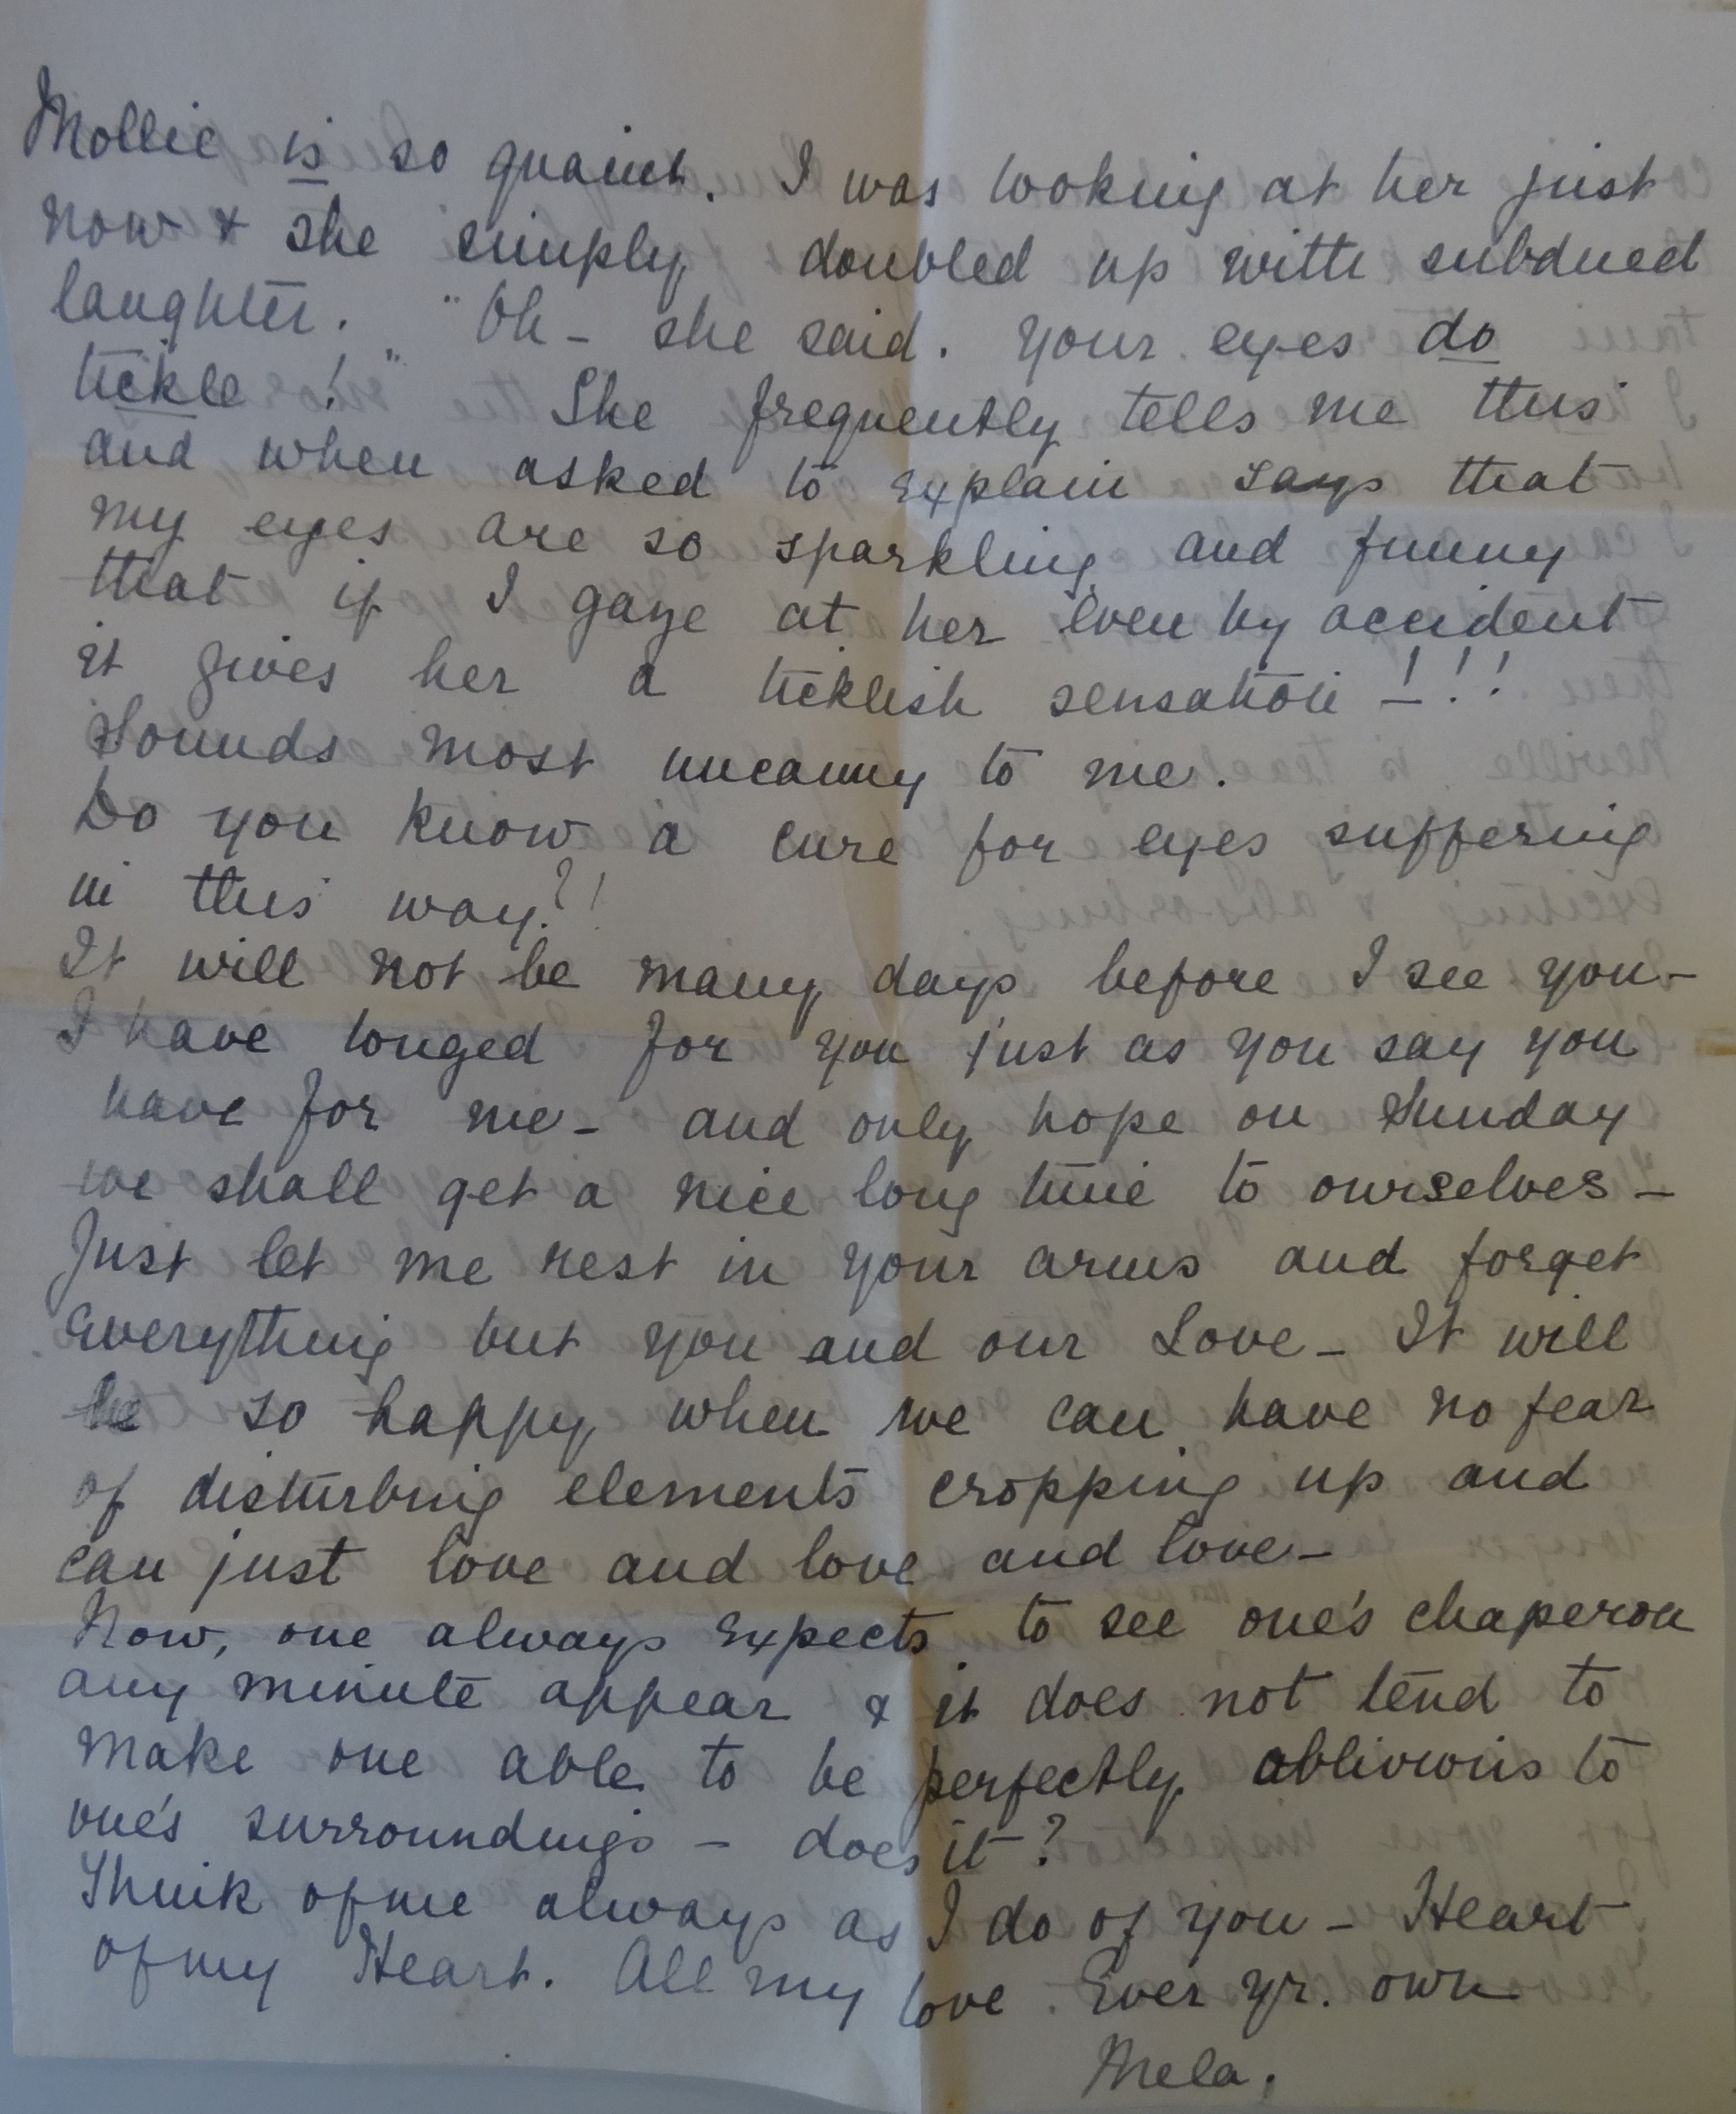 Mollie is so quaint. I was looking at her just
now & she simply doubled up with subdued
laughter. "Oh - she said. your eyes do
tickle!" She frequently tells me this
and when asked to explain says that
my eyes are so sparkling and funny
that if I gaze at her even by accident
it gives her a ticklish sensation - !!!
Sounds most uncanny to me.
Do you know a cure for eyes suffering
in this way?!
It will not be many days before I see you -
I have longed for you just as you say you
have for me - and only hope on Sunday
we shall get a nice long time to ourselves -
Just let me rest in your arms and forget
everything but you and our Love - It will
be so happy when we can have no fear
of disturbing elements cropping up and
can just love and love and love -
Now, one always expects to see one's chaperon
any minute appear & it does not tend to
make one able to be perfectly oblivious to
one's surroundings - does it?
Think of me always as I do of you - Heart
of my Heart. All my love. Ever yr. own
Mela.